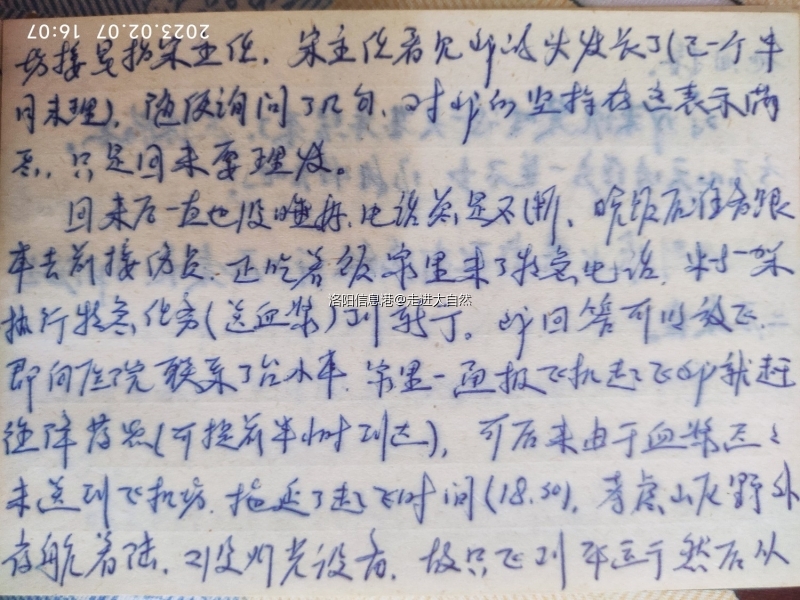 2023.02.07 16:07
场接是找宋主任，宋主任看见我头发长了(已一个半
月未理)，随便询问了几句，对我们坚持在这表示满
意，只是回来要理发。
回来后一直也没睡好，电话总是不断，晚饭后准备跟
车去前接伤员，正吃着饭家里来了特急电话，米-5一架
执行特急任务(送血浆)到新丁。我回答可以放飞，
即向医院联系了台小车，家里一通报飞机起飞我就赶
往降落点(可提前半小时到达)，可后来由于血浆迟迟
未送到飞机场，拖延了起飞时间(18.50)，考虑山区野外
夜航着陆，又没灯光设备，故只飞到 然后从
洛阳信息港@走进大自然